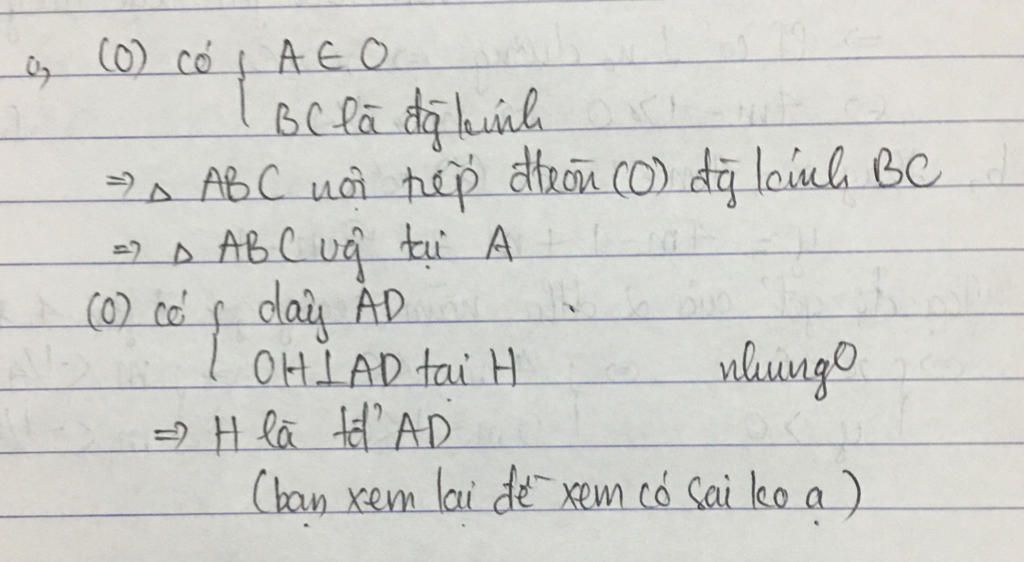 a, (O) có { A ∈ O
BC là đg kính
⇒ △ ABC nội tiếp đtròn (O) đg kính BC
⇒ △ ABC vg tại A
(O) có { dây AD
OH ⊥ AD tại H nhungo
⇒ H là tđ' AD
(bạn xem lại đề xem có sai ko ạ)